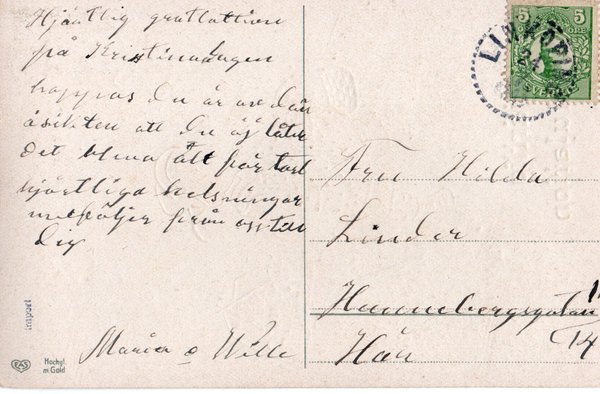 Hjärtlig gratlattion
på Kristinadagen
hoppas du är av den
åsikten att Du ej låter
det bliva ått för tort
hjärtliga helsningar
medföljer från oss till
Dig
Maria o Wille
Fru Hilda
Linder
Hunnebergsgatan
14
Här
5 5
ÖRE
SVERIGE
LINKÖPING
Import
EAS
Hochgl.
m. Gold